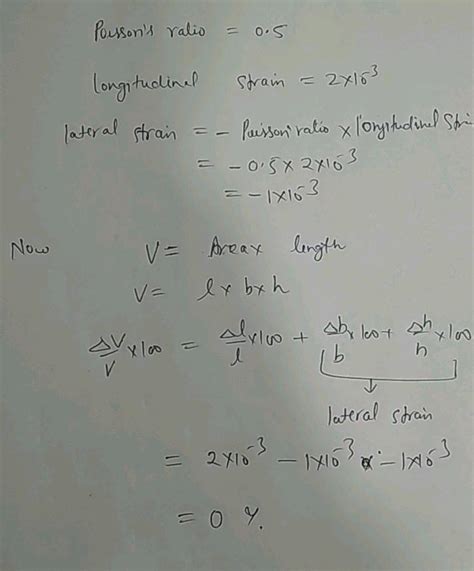 Poisson's ratio = 0.5
longitudinal strain = 2×10⁻³
lateral strain = - Poisson' ratio × longitudinal Strai
= - 0.5 × 2×10⁻³
= -1×10⁻³
Now V = Area x length
V = l × b × h
ΔV/V ×100 = Δl/l ×100 + Δb/b ×100 + Δh/h ×100
lateral strain
= 2×10⁻³ - 1×10⁻³ - 1×10⁻³
= 0 %.